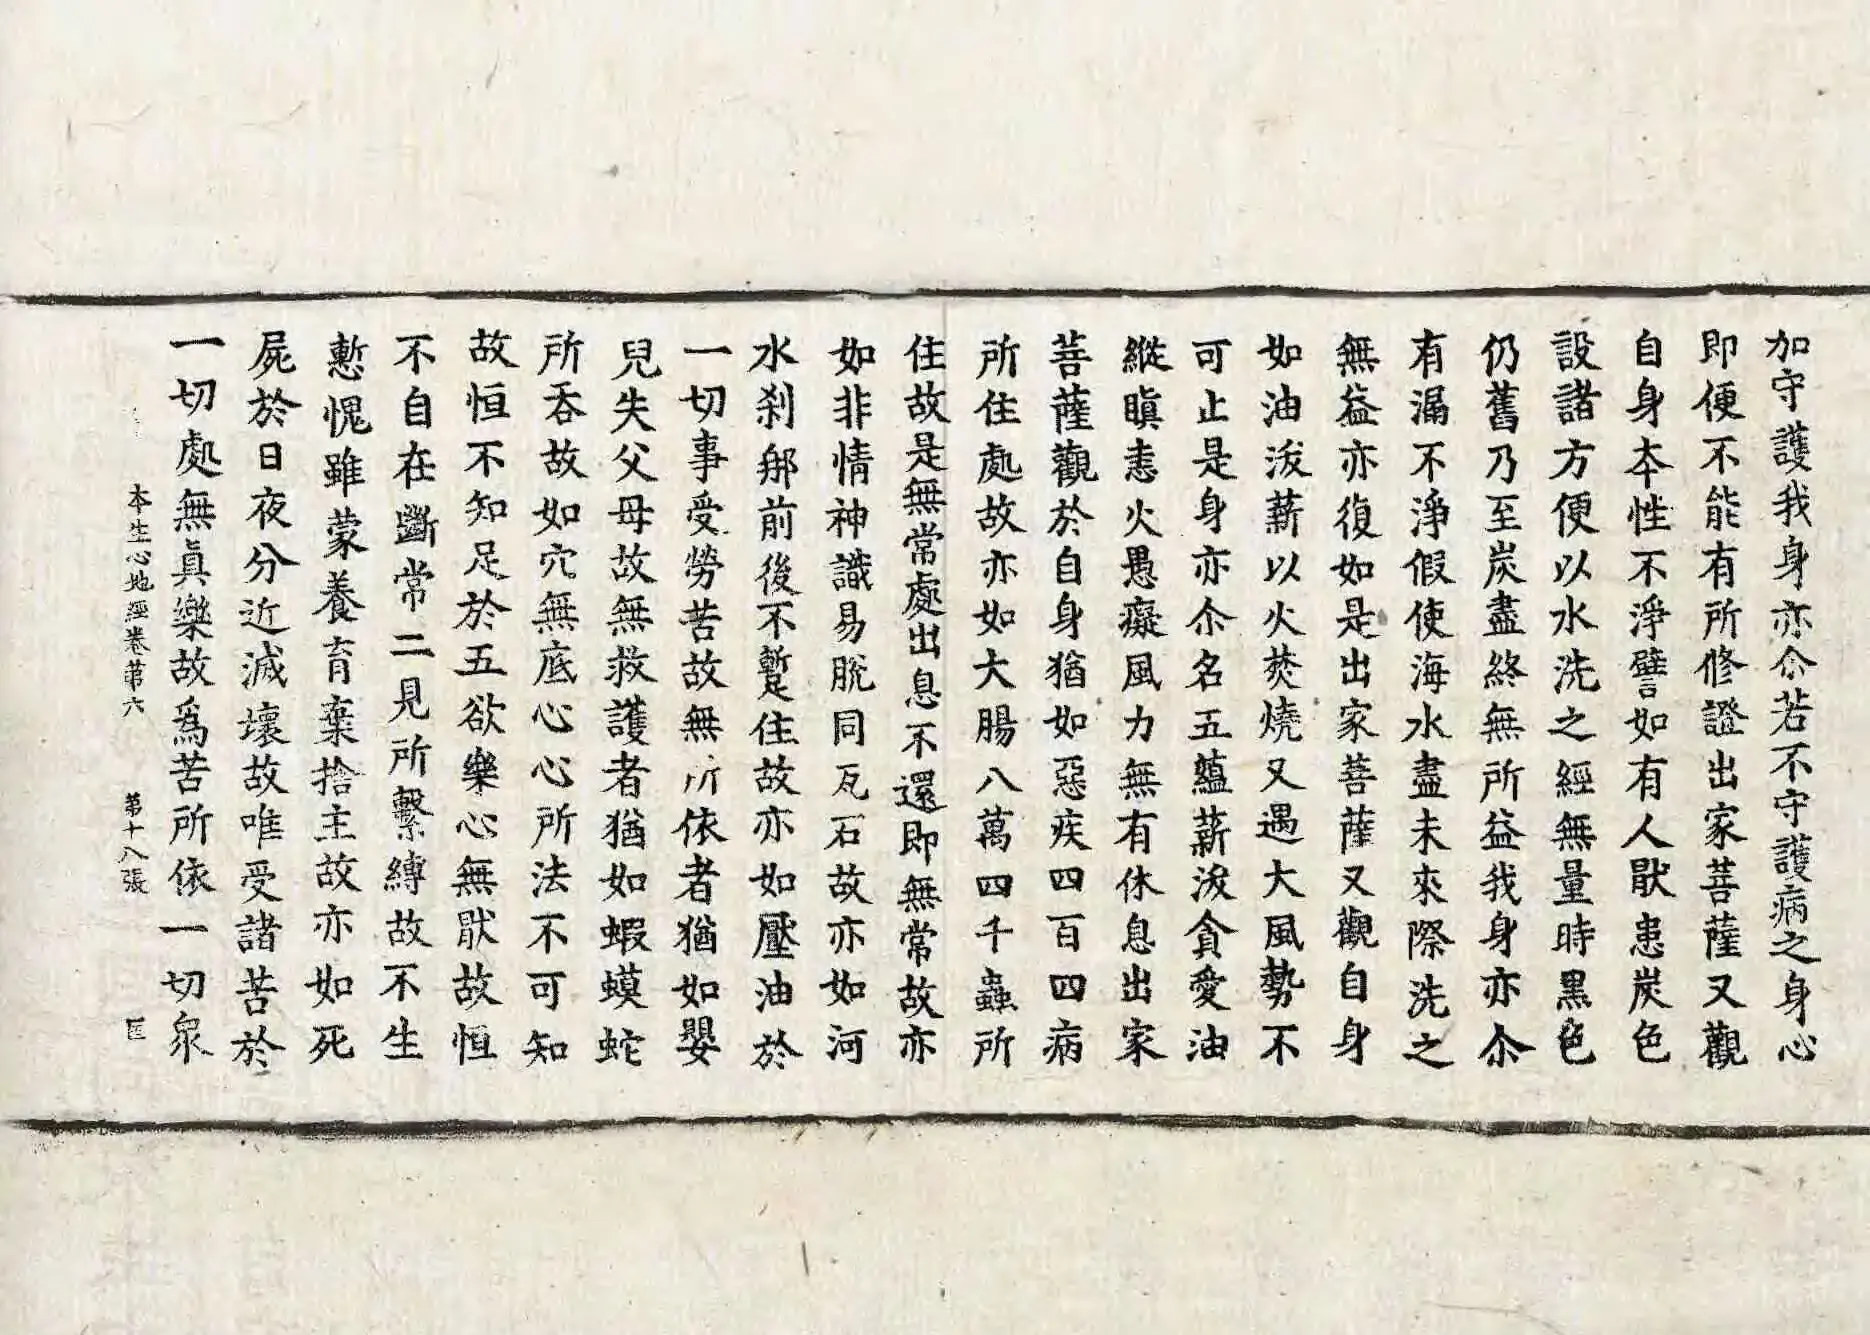 加守護我身亦尒若不守護病之身心
即便不能有所修證出家菩薩又觀
自身夲性不淨譬如有人猒患炭色
設諸方便以水洗之經無量時黑色
仍舊乃至炭盡終無所益我身亦尒
有漏不淨假使海水盡未來際洗之
無益亦復如是出家菩薩又觀自身
如油沷薪以火焚燒又遇大風勢不
可止是身亦尒名五蘊薪沷貪愛油
縱瞋恚火愚癡風力無有休息出家
菩薩觀於自身猶如惡疾四百四病
所住處故亦如大腸八萬四千蟲所
住故是無常處出息不還即無常故亦
如非情神識易脫同瓦石故亦如河
水刹那前後不暫住故亦如壓油於
一切事受勞苦故無所依者猶如嬰
兒失父母故無救護者猶如蝦蟆蛇
所吞故如穴無底心心所法不可知
故恒不知足於五欲樂心無猒故恒
不自在斷常二見所繫縛故不生
慙愧雖蒙養育棄捨主故亦如死
屍於日夜分近滅壞故唯受諸苦於
一切處無眞樂故爲苦所依一切衆
本生心地經卷第六 第十八張 匡